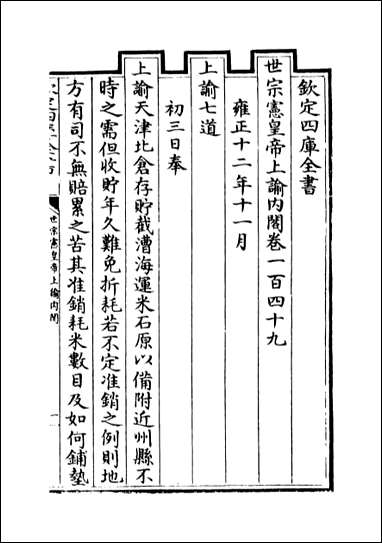 欽定四庫全書
世宗憲皇帝上諭內閣卷一百四十九
雍正十二年十一月
上諭七道
初三日奉
上諭天津北倉存貯截漕海運米石原以備附近州縣不
時之需但收貯年久難免折耗若不定准銷之例則地
方有司不無賠累之苦其准銷耗米數目及如何鋪墊
世宗憲皇帝上諭內閣